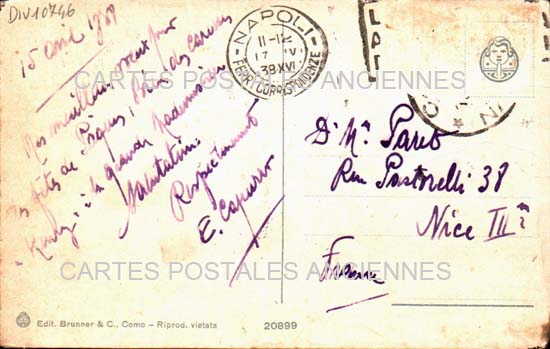 DIV10746
15 avril 1938
Mes meilleurs voeux pour
les fêtes de Pâques, Bien des caresses
à la grande Mademoiselle
Salutations
Respectueuses
E. Capurro
NAPOLI
11-12
17 IV
38·XVI
FERR. CORRISPONDENZE
Rue Pastorelli 38
Nice III
France
CARTES POSTALES ANCIENNES
CARTES POSTALES ANCIENNES
Edit. Brunner & C., Como – Riprod. vietata
20899